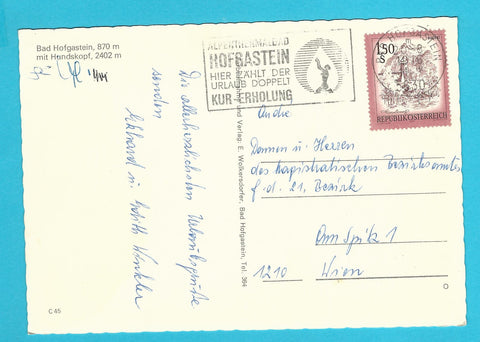 Bad Hofgastein, 870 m
mit Hundskopf, 2402 m
ALPENTHERMALBAD
HOFGASTEIN
HIER ZÄHLT DER
URLAUB DOPPELT
KUR-ERHOLUNG
1.50
S
REPUBLIK ÖSTERREICH
Die allerherzlichsten Urlaubsgrüße
senden
Ekkhard u. Edith Winkler
und Verlag: E. Wolkersdorfer, Bad Hofgastein, Tel. 364
An die
Damen u. Herren
des Magistratischen Bezirksamtes
f. d. 21. Bezirk
Am Spitz 1
1210 Wien
C 45